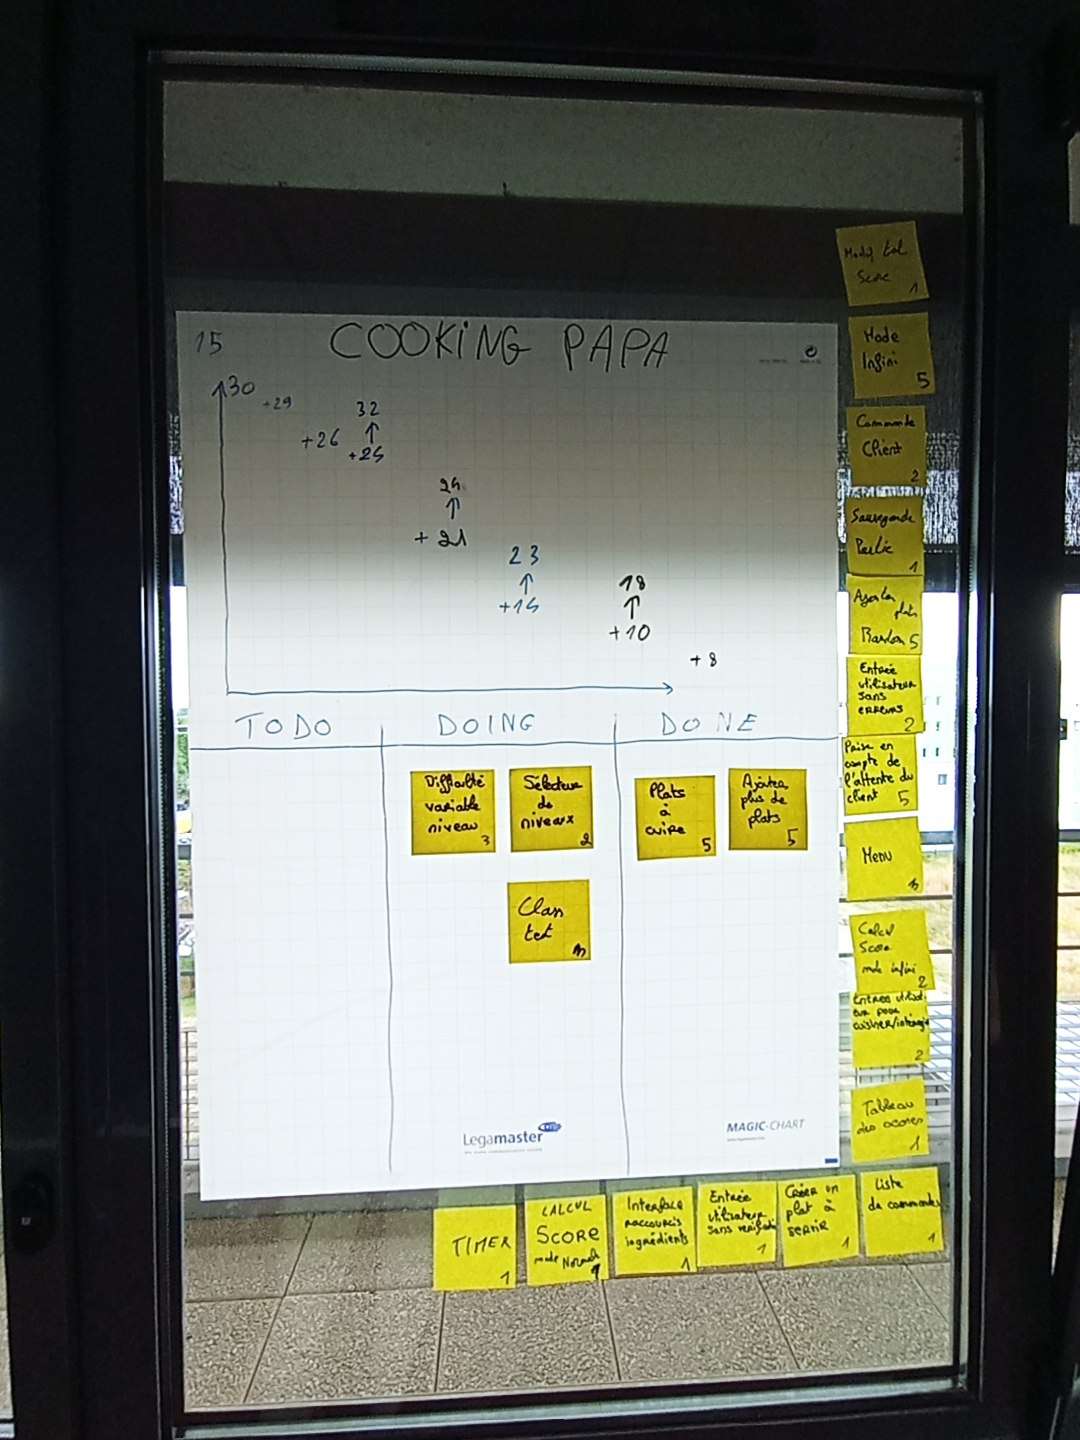 15
COOKING PAPA
30
+29
32
+26
+25
24
+21
23
+15
18
+10
+8
TODO
DOING
DONE
Difficulté
variable
niveau
3
Sélecteur
de
niveaux
2
Class
test
3
Plats
à
cuire
5
Ajouter
plus de
plats
5
Legamaster
MAGIC-CHART
Score
1
Mode
Infini
5
Commande
Client
2
Sauvegarde
Partie
1
Ajouter
plats
5
Entrée
utilisateur
sans
erreurs
2
Prise en
compte de
l'attente du
client
5
Menu
3
Calcul
Score
mode infini
2
Entrées utilisat-
eur pour
cuisiner/interagir
2
Tableau
des scores
1
TIMER
1
CALCUL
SCORE
mode Normal
1
Interface
raccourcis
ingrédients
1
Entrée
utilisateur
sans verificati
1
Créer un
plat à
servir
1
Liste
de commandes
1